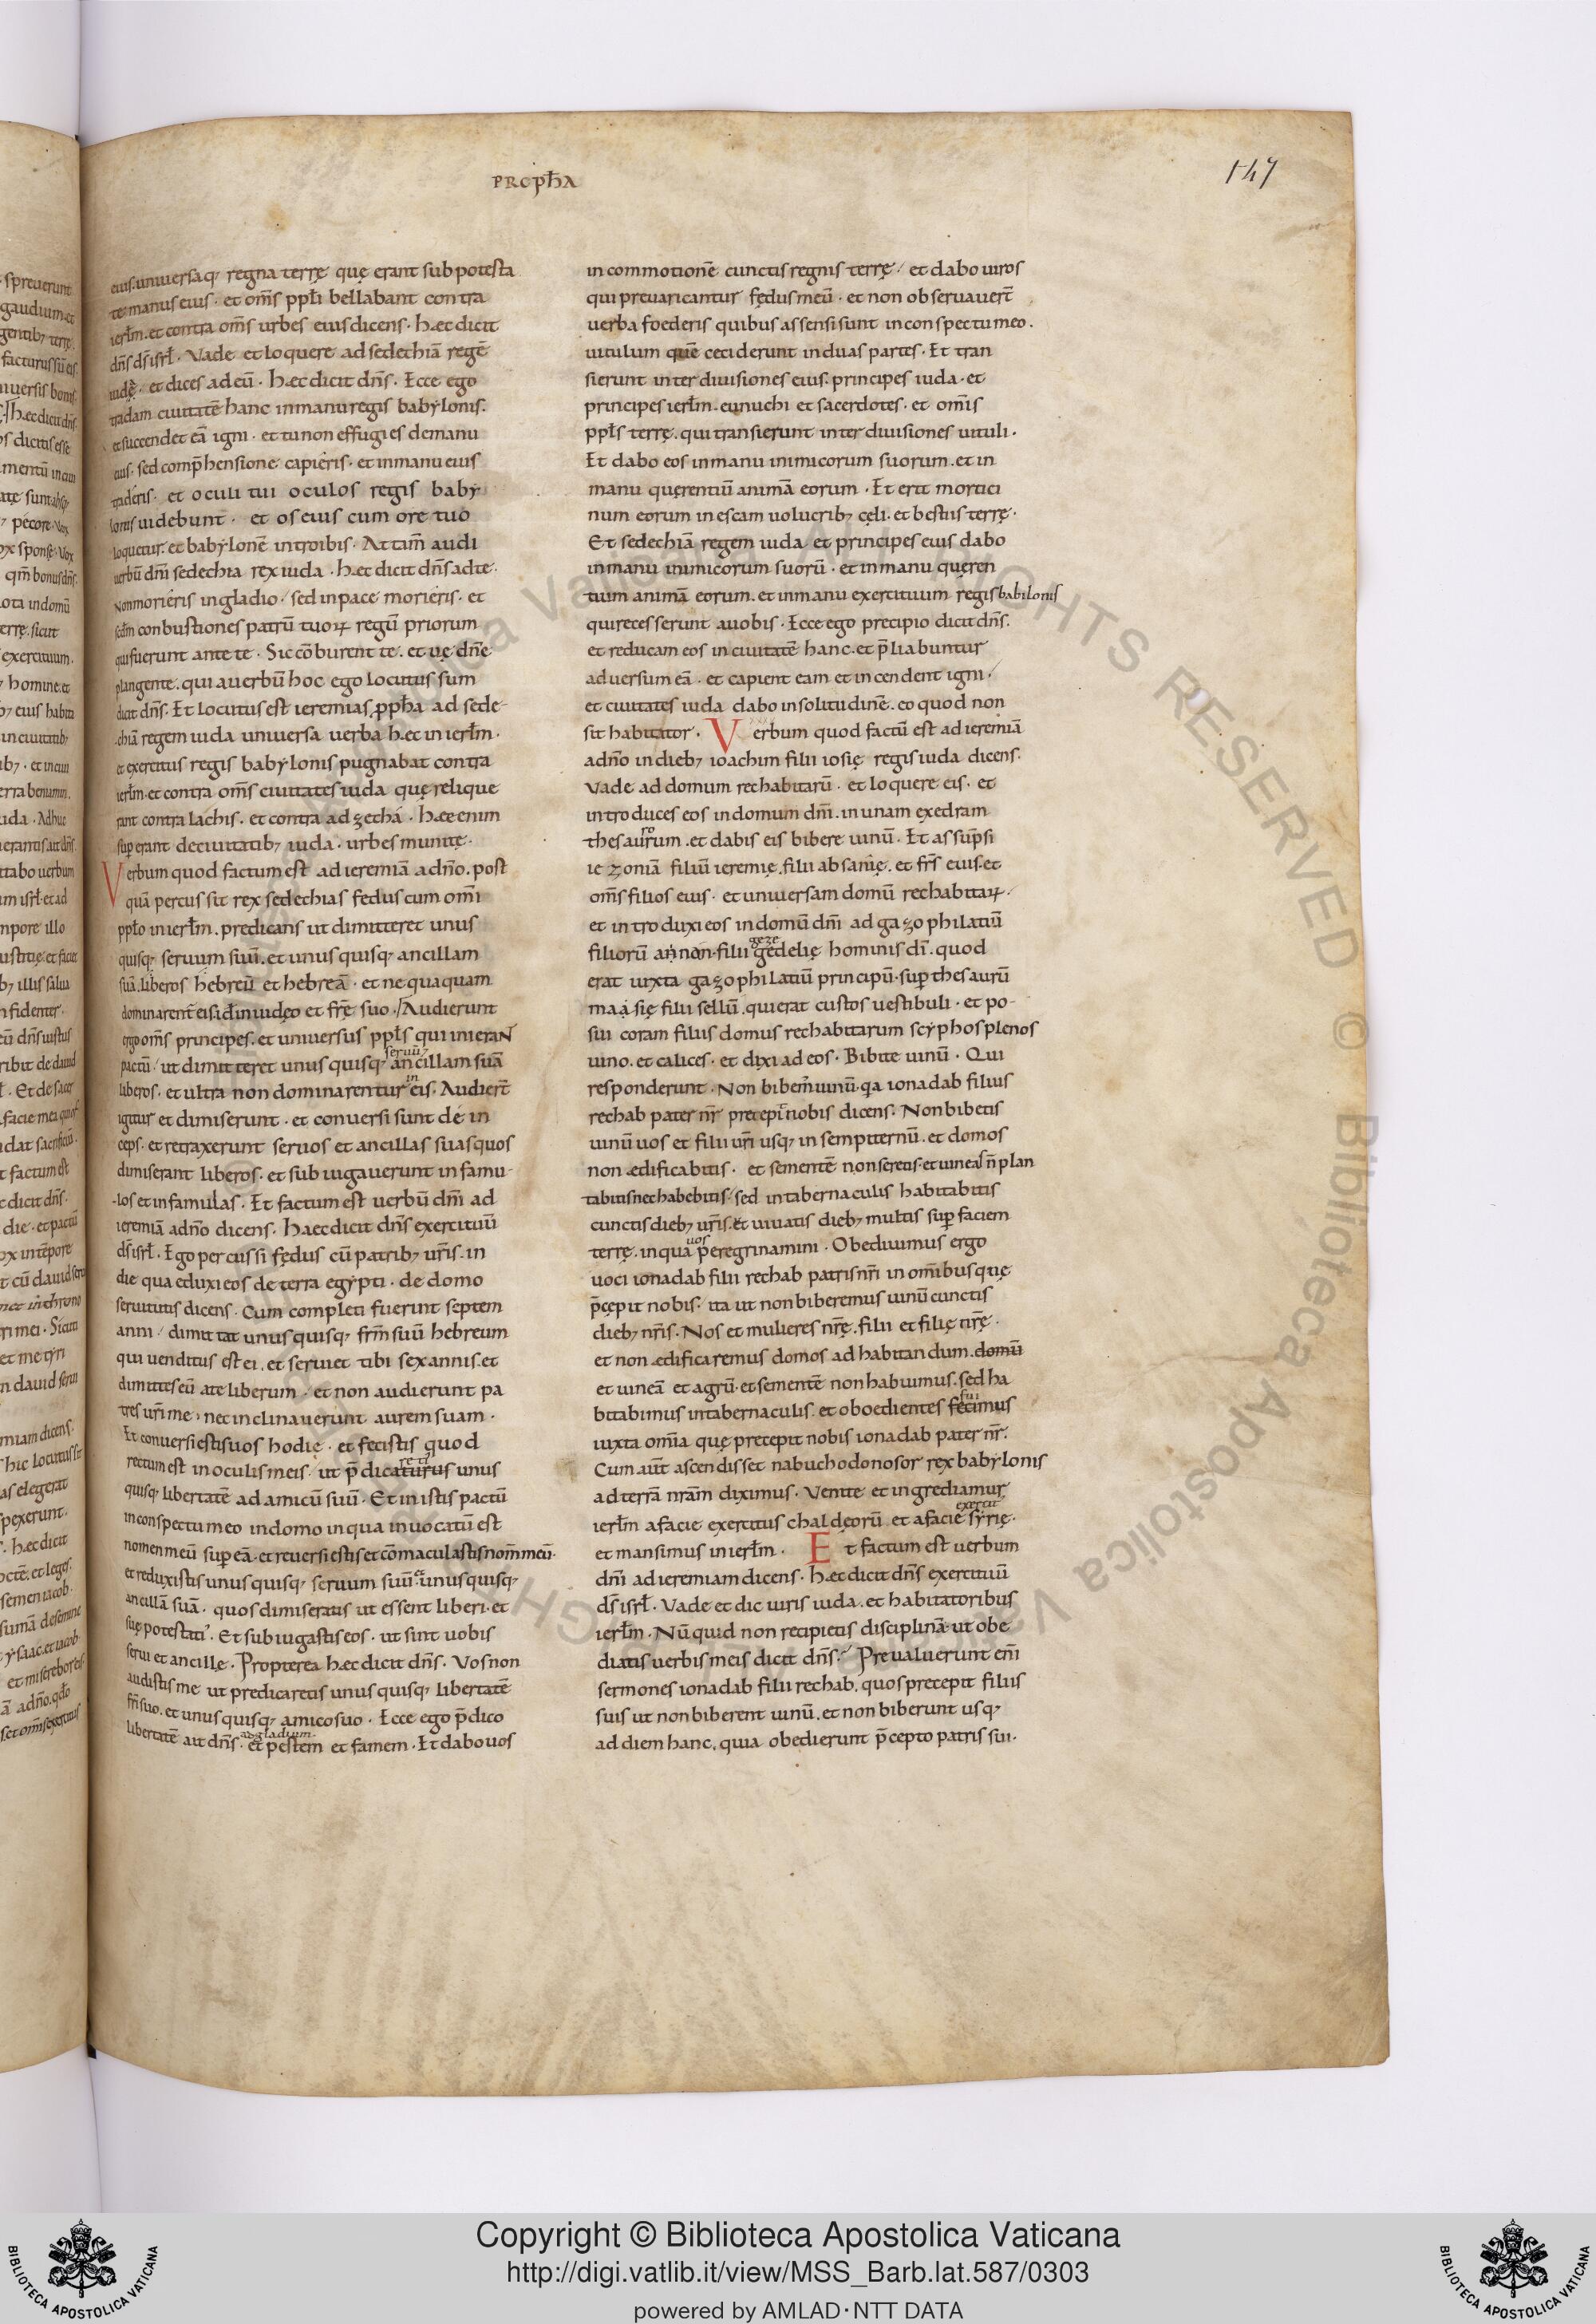 PROPħA
147
eius. uniuersaq; regna terrę quę erant sub potesta
te manus eius · et om̄s ppłi bellabant contra
ierłm. et contra om̄s urbes eius dicens · Hæc dicit
dn̄s ds̄ isrł · Vade et loquere ad sedechiā regē
iudę · et dices ad eū · Hæc dicit dn̄s · Ecce ego
tradam ciuitatē hanc in manu regis babylonis.
et succendet eā igni · et tu non effugies de manu
eius · sed comp̄hensione capieris · et in manu eius
traderis · et oculi tui oculos regis baby
lonis uidebunt · et os eius cum ore tuo
loquetur. et babylonē introibis · Attam̄ audi
uerbū dn̄i sedechia rex iuda · hæc dicit dn̄s ad te ·
Non morieris in gladio · sed in pace morieris · et
scd̄m conbustiones patrū tuoꝝ regū priorum
qui fuerunt ante te · Sic cōburent te · et uę dn̄e
plangente. quia uerbū hoc ego locutus sum
dicit dn̄s · Et locutus est ieremias ppħa ad sede-
chiā regem iuda uniuersa uerba hæc in ierłm ·
et exercitus regis babylonis pugnabat contra
ierłm · et contra om̄s ciuitates iuda quę relique
rant contra lachis · et contra ad zecha · Hæ enim
suꝑerant de ciuitatib; iuda · urbes munitę ·
Verbum quod factum est ad ieremiā a dn̄o · post
quā percussit rex sedechias fedus cum om̄i
ppło in ierłm. predicans ut dimitteret unus
quisq; seruum suū. et unus quisq; ancillam
suā. liberos hebreū et hebreā · et nequaquam
dominarent̄ eis. id in iudęo et fr̄e suo · Audierunt
ergo om̄s principes. et uniuersus ppłs qui inieraɴt
pactū · ut dimitteret unus quisq; seruū; ancillam suā
liberos · et ultra non dominarentur in eis. Audiert̄
igitur et dimiserunt · et conuersi sunt dein
ceps · et retraxerunt seruos et ancillas suas quos
dimiserant liberos · et subiugauerunt in famu-
los et in famulas · Et factum est uerbū dn̄i ad
ieremiā a dn̄o dicens · Haec dicit dn̄s exercituū
ds̄ isrł · Ego percussi fędus cū patrib; ur̄is · in
die qua eduxi eos de terra egypti · de domo
seruitutis dicens · Cum completi fuerint septem
anni · dimittat unus quisq; fr̄m suū hebreum
qui uenditus est ei. et seruiet tibi sex annis. et
dimittes eū a te liberum · et non audierunt pa
tres ur̄i me · nec inclinauerunt aurem suam ·
Et conuersi estis uos hodie · et fecistis quod
rectum est in oculis meis · ut p̄dicaturus retis unus
quisq; libertatē ad amicū suū · Et inistis pactū
in conspectu meo in domo in qua inuocatū est
nomen meū suꝑ eā · et reuersi estis et cōmaculastis nom̄ meū ·
et reduxistis unus quisq; seruum suū · et unus quisq;
ancillā suā · quos dimiseratis ut essent liberi · et
suę potestati' · Et subiugastis eos · ut sint uobis
serui et ancille · Propterea hæc dicit dn̄s · Vos non
audistis me ut predicaretis unus quisq; libertatē
fr̄i suo. et unus quisq; amico suo · Ecce ego p̄dico
libertatē ait dn̄s · ad gladium et pestem et famem · Et dabo uos
in commotionē cunctis regnis terrę · et dabo uiros
qui preuaricantur fędus meū · et non obseruauert̄
uerba foederis quibus assensi sunt in conspectu meo ·
uitulum quē ceciderunt in duas partes · Et tran
sierunt inter diuisiones eius. principes iuda · et
principes ierłm · eunuchi et sacerdotes · et om̄is
ppłs terrę. qui transierunt inter diuisiones uituli ·
Et dabo eos in manu inimicorum suorum · et in
manu querentiū animā eorum · Et erit mortici
num eorum in escam uolucrib; cęli · et bestiis terrę ·
Et sedechiā regem iuda · et principes eius dabo
in manu inimicorum suorū · et in manu queren
tium animā eorum. et in manu exercituum regis babilonis
qui recesserunt a uobis · Ecce ego precipio dicit dn̄s.
et reducam eos in ciuitatē hanc. et p̄liabuntur
aduersum eā · et capient eam et incendent igni ·
et ciuitates iuda dabo in solitudinē. eo quod non
sit habitator · Verbum quod factū est ad ieremiā
a dn̄o in dieb; ioachim filii iosię regis iuda dicens ·
Vade ad domum rechabitarū · et loquere eis · et
introduces eos in domum dn̄i. in unam exedram
thesaurorum. et dabis eis bibere uinū · Et assūpsi
iezoniā filiū ieremię. filii absanię. et fr̄s eius. et
om̄s filios eius · et uniuersam domū rechabitaꝝ ·
et introduxi eos in domū dn̄i ad gazophilatiū
filiorū annan. filii geze gedelię hominis dī. quod
erat iuxta gazophilatiū principū · suꝑ thesaurū
maasię filii sellū. qui erat custos uestibuli · et po-
sui coram filiis domus rechabitarum scyphos plenos
uino. et calices · et dixi ad eos · Bibite uinū · Qui
responderunt · Non bibem' uinū. qa ionadab filius
rechab pater nr̄ precepit nobis dicens · Non bibetis
uinū uos et filii ur̄i usq; in sempiternū. et domos
non ędificabitis · et sementē non seretis · et uineas n̄ plan
tabitis nec habebitis · sed in tabernaculis habitabitis
cunctis dieb; ur̄is. et uiuatis dieb; multis suꝑ faciem
terrę. in qua uos peregrinamini · Obediuimus ergo
uoci ionadab filii rechab patris nr̄i in omībus quę
p̄cepit nobis · ita ut non biberemus uinū cunctis
dieb; nr̄is · Nos et mulieres nr̄ę. filii et filię nr̄ę ·
et non ędificaremus domos ad habitandum. domū
et uineā et agrū · et sementē non habuimus · sed ha
bitabimus in tabernaculis · et oboedientes fecimus fui
iuxta om̄ia quę precepit nobis ionadab pater nr̄ ·
Cum aūt ascendisset nabuchodonosor rex babylonis
ad terrā nr̄am diximus · Venite et ingrediamur
ierłm a facie exercitus chaldęorū et a facie exercit' syrię ·
et mansimus in ierłm · Et factum est uerbum
dn̄i ad ieremiam dicens · Hæc dicit dn̄s exercituū
ds̄ isrł · Vade et dic uiris iuda. et habitatoribus
ierłm · Nūquid non recipietis disciplinā · ut obe
diatis uerbis meis dicit dn̄s · Preualuerunt eni
sermones ionadab filii rechab. quos precepit filiis
suis ut non biberent uinū. et non biberunt usq;
ad diem hanc. quia obedierunt p̄cepto patris sui ·
Copyright © Biblioteca Apostolica Vaticana
http://digi.vatlib.it/view/MSS_Barb.lat.587/0303
powered by AMLAD·NTT DATA
BIBLIOTECA APOSTOLICA VATICANA
BIBLIOTECA APOSTOLICA VATICANA